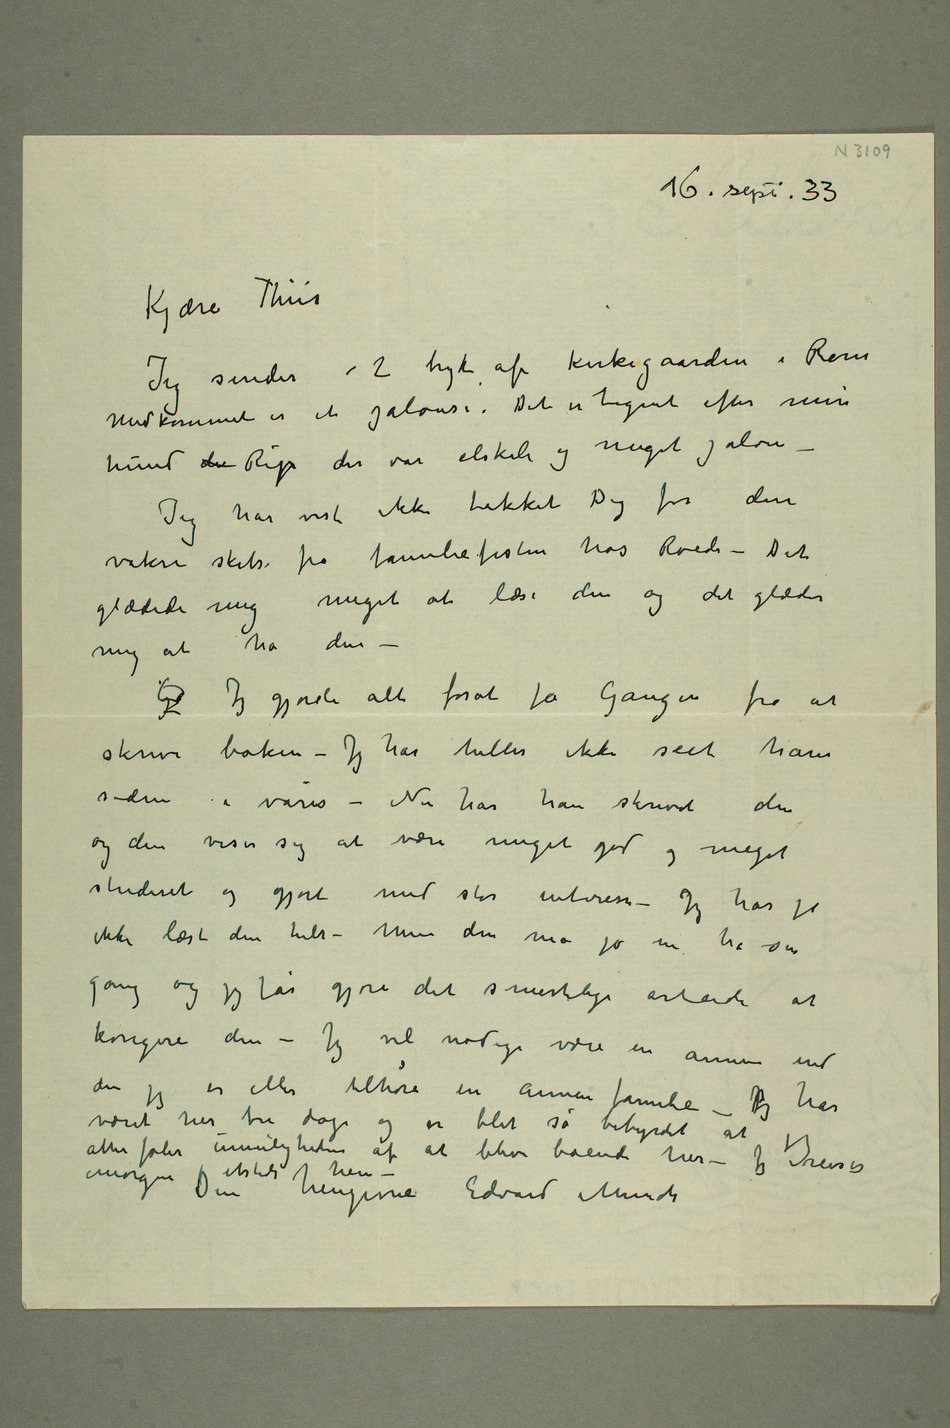 N 3109
16. sept. 33
Kjære Thiis
Jeg sender 2 tryk af Kirkegaarden i Rom
Medkommet er et jalousi. Det er tegnet efter min
hund Rip der var elskelig og meget jalou –
Jeg har vist ikke takket Dig for den
vakre skits fra familiefesten hos Roede – Det
glædede mig meget at læse den og det glæder
mig at ha den –
Jg gjorde alt forat få Gauguin fra at
skrive boken – Jg har heller ikke seet ham
siden i våres – Nu har han skrevet den
og den viser sig at være meget god og meget
studeret og gjort med stor interesse – Jg har jo
ikke læst den hele – Men den må jo nu ha sin
gang og jg får gjøre det smertelige arbeide at
korigere den – Jg vil nødig være en annen end
den jg er eller tilhøre en annen familie – Jg har
været her tre dage og er blet så bebyrdet at jg
atter føler umuligheden af at blive boende her – Jg dreiser
imorgen etsteds hen –
Din hengivne Edvard Munch